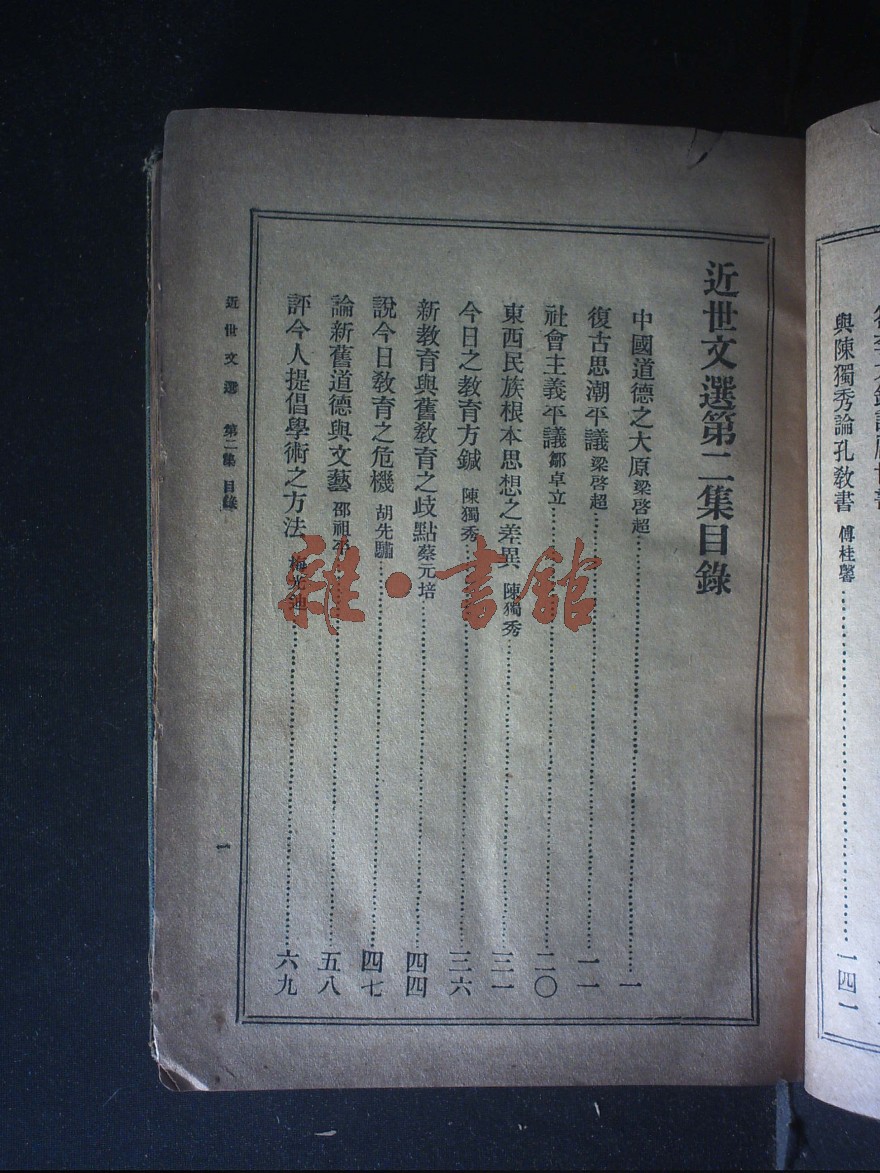 與陳獨秀論孔敎書 傅桂馨 一四一
近世文選第二集目錄
中國道德之大原 梁啓超 一
復古思潮平議 梁啓超 一一
社會主義平議 鄒卓立 二〇
東西民族根本思想之差異 陳獨秀 三一
今日之敎育方鍼 陳獨秀 三六
新敎育與舊敎育之歧點 蔡元培 四四
說今日敎育之危機 胡先驌 四七
論新舊道德與文藝 邵祖平 五八
評今人提倡學術之方法 梅光迪 六九
近世文選 第二集 目錄
一
雜·書館